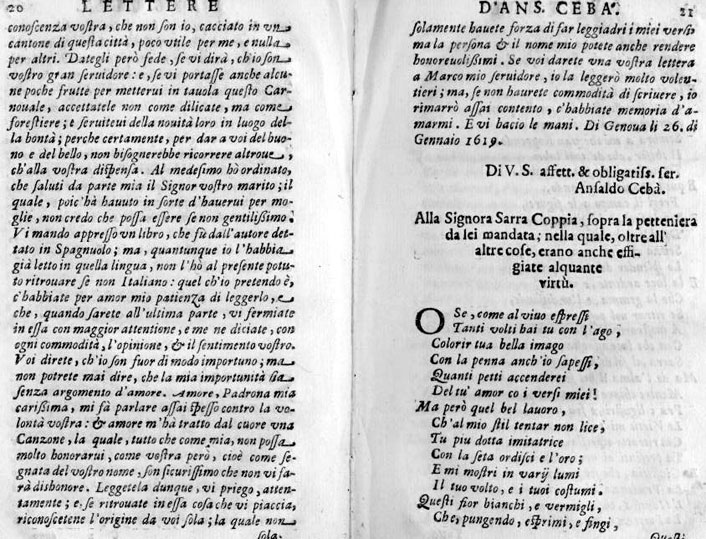 20 LETTERE
conoscenza vostra, che non son io, cacciato in un
cantone di questa città, poco utile per me, e nulla
per altri. Dategli però sede, se vi dirà, ch'io son
vostro gran seruidore: e, se vi portasse anche alcu-
ne poche frutte per metterui in tauola questo Car-
nouale, accettatele non come dilicate, ma come
forestiere; e seruiteui della nouità loro in luogo del-
la bontà; perche certamente, per dar a voi del buo-
no e del bello, non bisognerebbe ricorrere altroue,
ch'alla vostra dispensa. Al medesimo hò ordinato,
che saluti da parte mia il Signor vostro marito; il
quale, poic'hà hauuto in sorte d'hauerui per mo-
glie, non credo che possa essere se non gentilissimo.
Vi mando appresso vn libro, che fù dall'autore det-
tato in Spagnuolo; ma, quantunque io l'habbia
già letto in quella lingua, non l'hò al presente potu-
to ritrouare se non Italiano: quel ch'io pretendo è,
c'habbiate per amor mio patienza di leggerlo, e
che, quando sarete all'ultima parte, vi fermiate
in essa con maggior attentione, e me ne diciate, con
ogni commodità, l'opinione, & il sentimento vostro.
Voi direte, ch'io son fuor di modo importuno; ma
non potrete mai dire, che la mia importunità sia
senza argomento d'amore. Amore, Padrona mia
carissima, mi fà parlare assai spesso contro la vo-
lontà vostra: & amore m'hà tratto dal cuore vna
Canzone, la quale, tutto che come mia, non possa
molto honorarui, come vostra però, cioè come se-
gnata del vostro nome, son sicurissimo che non vi fa-
rà dishonore. Leggetela dunque, vi priego, atten-
tamente; e se ritrouate in essa cosa che vi piaccia,
riconoscetene l'origine da voi sola; la quale non
sola-
D'ANS. CEBA'. 21
solamente hauete forza di far leggiadri i miei versi
ma la persona & il nome mio potete anche rendere
honoreuolissimi. Se voi darete vna vostra lettera
a Marco mio seruidore, io la leggerò molto volen-
tieri; ma, se non haurete commodità di scriuere, io
rimarrò assai contento, c'habbiate memoria d'a-
marmi. E vi bacio le mani. Di Genoua li 26. di
Gennaio 1619.
Di V. S. affett. & obligatiss. ser.
Ansaldo Cebà.
Alla Signora Sarra Coppia, sopra la petteniera
da lei mandata; nella quale, oltre all'
altre cose, erano anche effi-
giate alquante
virtù.
O Se, come al viuo espressi
Tanti volti hai tu con l'ago,
Colorir tua bella imago
Con la penna anch'io sapessi,
Quanti petti accenderei
Del tu' amor co i versi miei!
Ma però quel bel lauoro,
Ch'al mio stil tentar non lice,
Tu piu dotta imitatrice
Con la seta ordisci e l'oro;
E mi mostri in varij lumi
Il tuo volto, e i tuoi costumi.
Questi fior bianchi, e vermigli,
Che, pungendo, esprimi, e fingi,
Questi